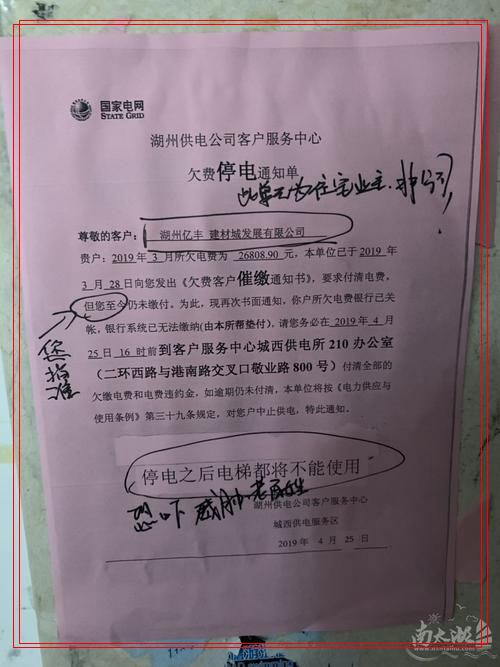 国家电网
STATE GRID
湖州供电公司客户服务中心
欠费停电通知单
此单元为住宅业主.非公司
尊敬的客户: 湖州亿丰 建材城发展有限公司
贵户: 2019 年 3 月所欠电费为 26808.90 元, 本单位已于 2019 年
3 月 28 日向您发出《欠费客户催缴通知书》, 要求付清电费,
但您至今仍未缴付。为此, 现再次书面通知, 你户所欠电费银行已关
帐, 银行系统已无法缴纳(由本所帮垫付). 请您务必在 2019 年 4 月
25 日 16 时前到客户服务中心城西供电所 210 办公室
(二环西路与港南路交叉口敬业路 800 号) 付清全部的
欠缴电费和电费违约金, 如逾期仍未付清, 本单位将按《电力供应与
使用条例》第三十九条规定, 对您户中止供电, 特此通知。
您指谁
停电之后电梯都将不能使用
恐吓 威胁老百姓
湖州供电公司客户服务中心
城西供电服务区
2019 年 4 月 25 日
南太湖
www.nantaihu.com